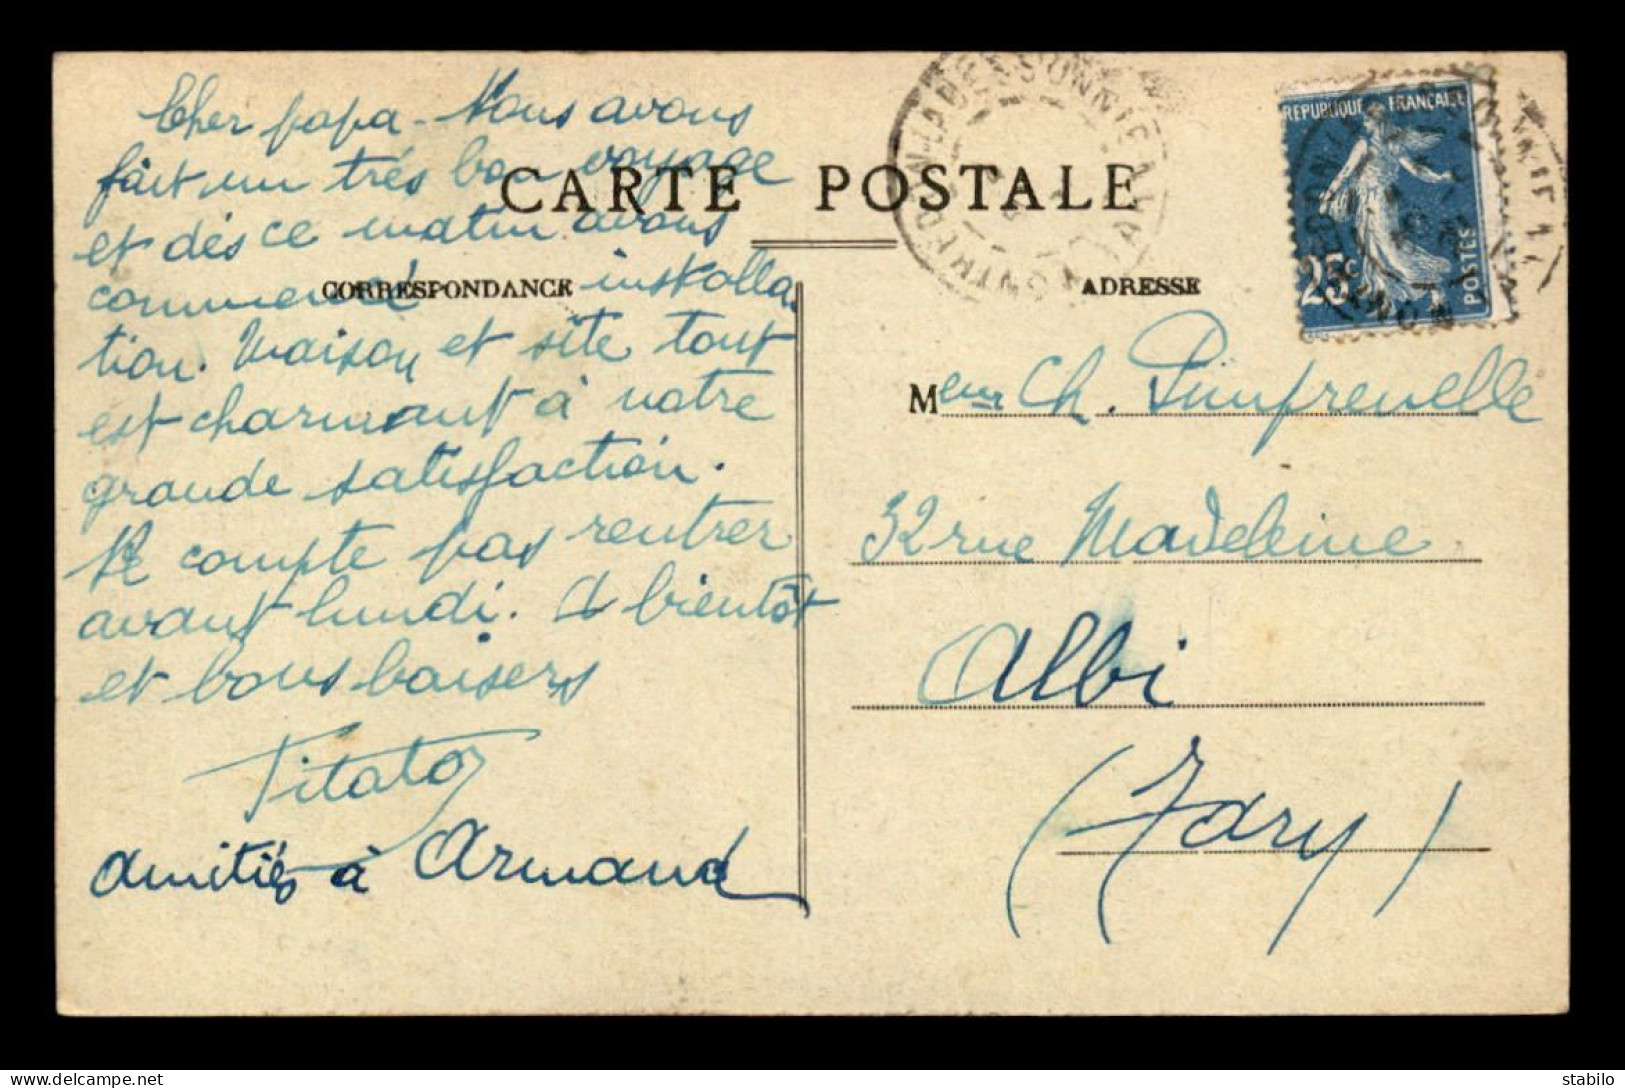 Cher papa - Nous avons
fait un très bon voyage
et dès ce matin avons
commencé installa-
tion. Maison et site tout
est charmant à notre
grande satisfaction.
Ne compte pas rentrer
avant lundi. A bientôt
et bons baisers
Titato
amitiés à Armand
CARTE POSTALE
CORRESPONDANCE
ADRESSE
REPUBLIQUE FRANÇAISE
25c
POSTES
M Ch. Pimprenelle
32 rue Madeleine
Albi
(Tarn)
delcampe.net
stabilo